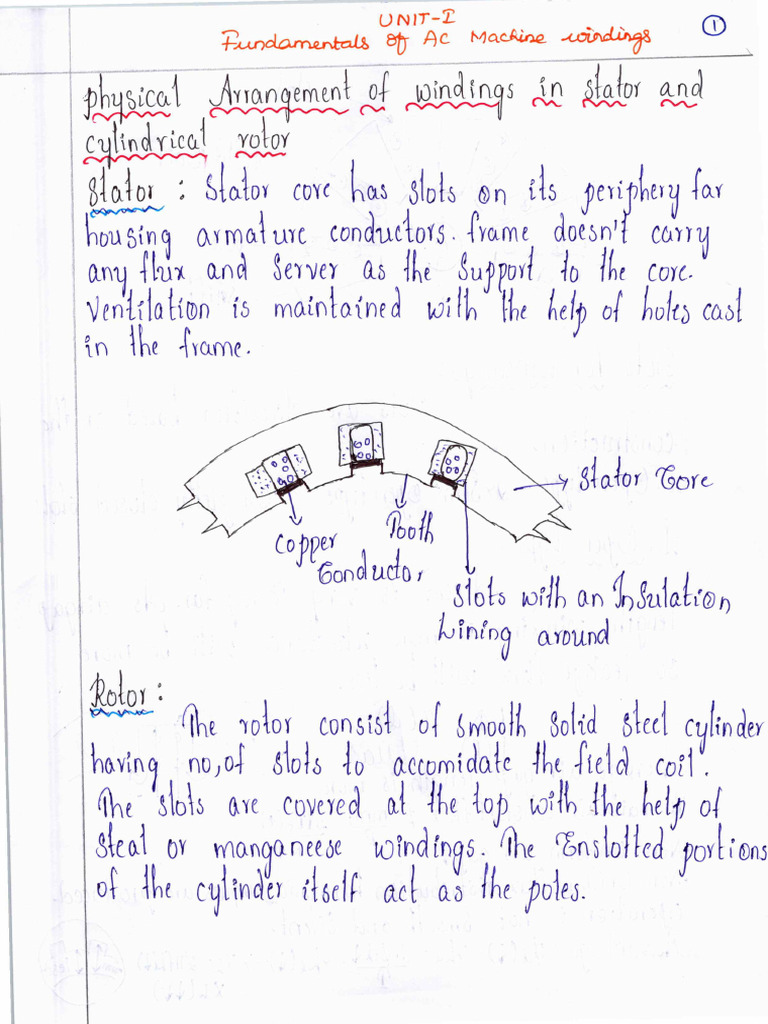 UNIT-I
Fundamentals of AC Machine windings
1
physical Arrangement of windings in stator and
cylindrical rotor
Stator : Stator core has slots on its periphery far
housing armature conductors. frame doesn't carry
any flux and server as the support to the core.
Ventilation is maintained with the help of holes cast
in the frame.
Stator Core
Copper
Conductor
Tooth
Slots with an Insulation
Lining around
Rotor :
The rotor consist of smooth solid steel cylinder
having no, of slots to accomidate the field coil.
The slots are covered at the top with the help of
steal or manganeese windings. The Enslotted portions
of the cylinder itself act as the poles.